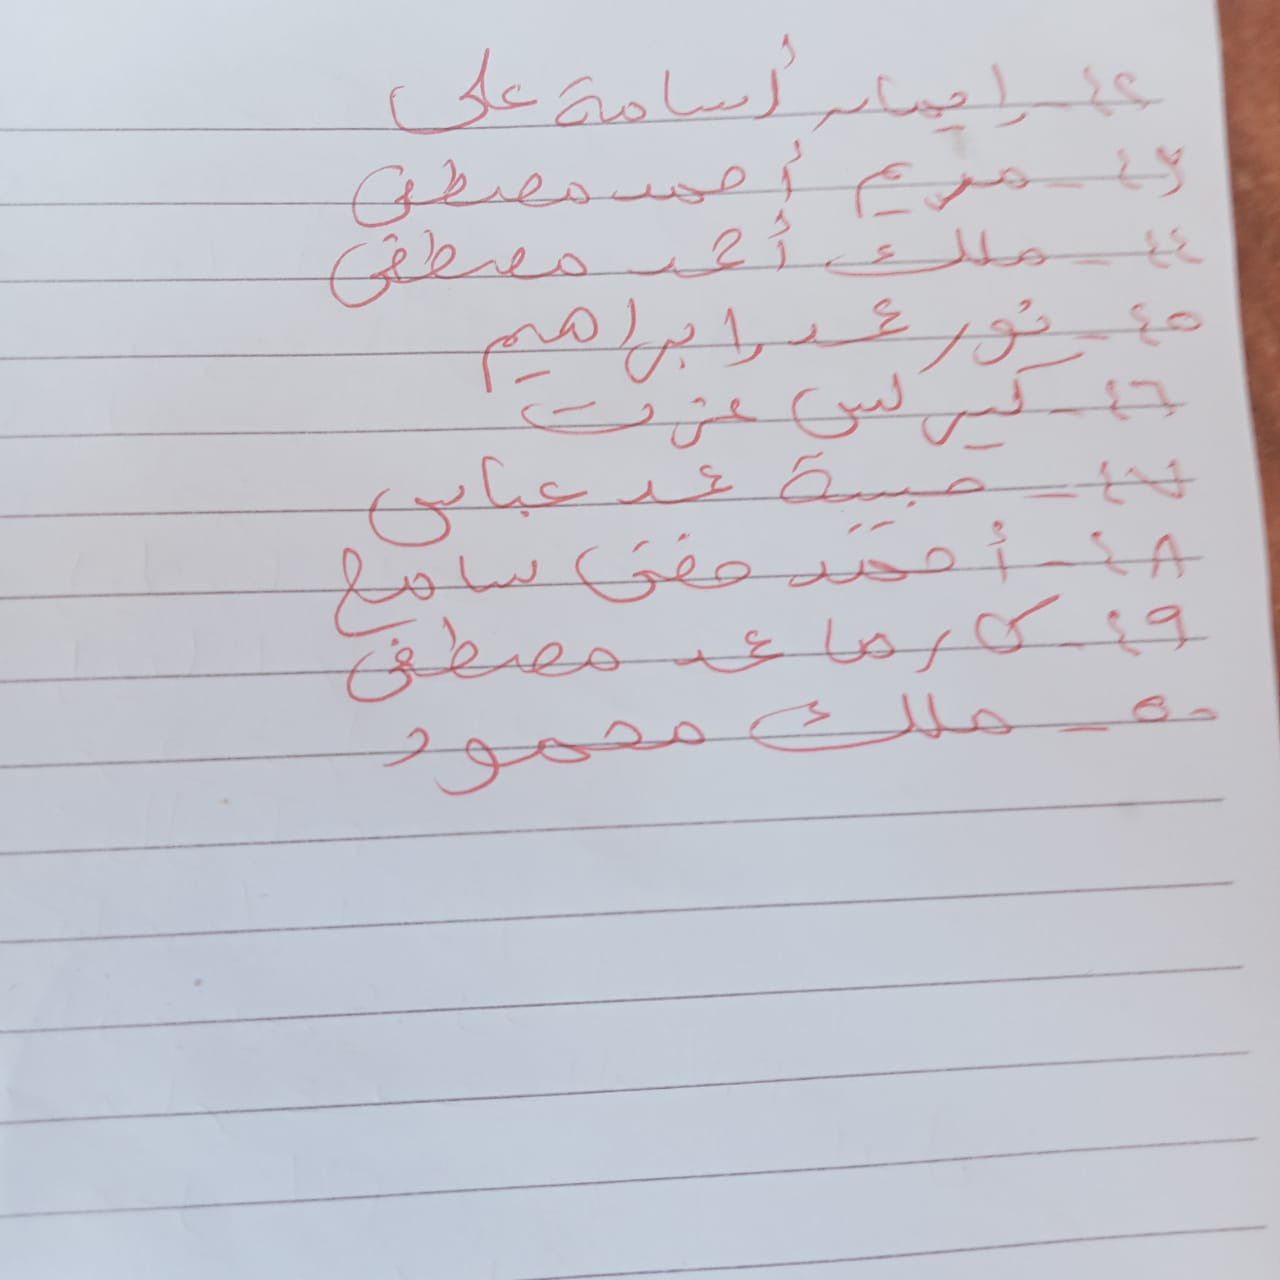 ٤٢ - إيمان أسامة على
٤٣ - مريم أحمد مصطفى
٤٤ - ملك أحمد مصطفى
٤٥ - نور محمد ابراهيم
٤٦ - كيرلس عزت
٤٧ - حبيبة محمد عباس
٤٨ - أحمد حفنى سامح
٤٩ - كارما محمد مصطفى
٥٠ - ملك محمود